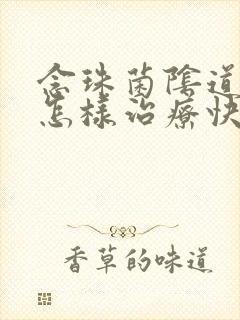 念珠菌陰道
怎樣治療快
香草的味道